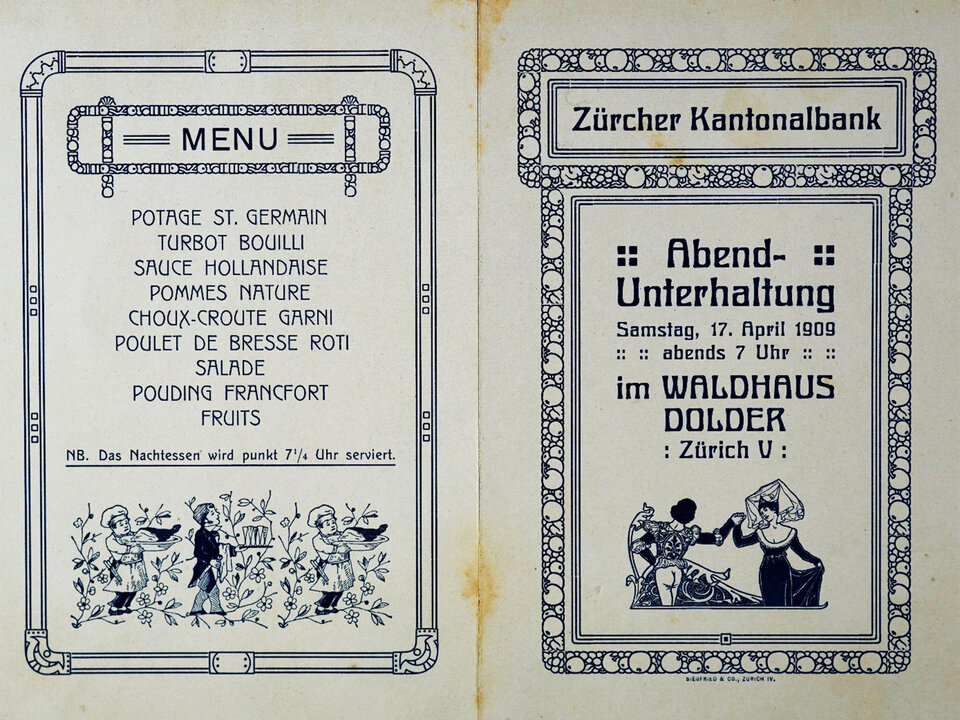 MENU
POTAGE ST. GERMAIN
TURBOT BOUILLI
SAUCE HOLLANDAISE
POMMES NATURE
CHOUX-CROUTE GARNI
POULET DE BRESSE ROTI
SALADE
POUDING FRANCFORT
FRUITS
NB. Das Nachtessen wird punkt 7¼ Uhr serviert.
Zürcher Kantonalbank
:: Abend- ::
Unterhaltung
Samstag, 17. April 1909
:: :: abends 7 Uhr :: ::
im WALDHAUS
DOLDER
: Zürich V :
SIEGFRIED & CO., ZÜRICH IV.